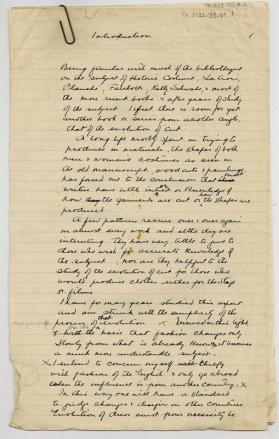 TH 633-193.M.2
Introduction
1
Being familiar with most of the bibliotheques
on the subject of Historic Costume, La Croix,
Planché, Fairholt, Kelly Schwabe, & most of
the more recent books & after years of study
of the subject I feel there is room for yet
another book or series from another angle,
that of the evolution of cut
A long life mostly spent in trying to
produce in materials, the shapes of both
men & womens costumes as seen in
the old manuscript, wood cuts & paintings
has forced me to the conclusion that these
writers have little interest or knowledge of
how the garments are cut or how the shapes are
produced
A few patterns recur over & over again
in almost every work and altho they are
interesting. They have very little to give to
those who wish for accurate knowledge of
the subject nor are they helpful to the
study of the evolution of cut for those who
would produce clothes either for the stage
or films
I have for many years studied this aspect
and am struck with the simplicity of the
process of evolution. X Viewed in this light
& with the basis that fashion changes only
slowly from what is already known it becomes
a much more understandable subject.
X I intend to concern myself chiefly
with fashion of the English & only go abroad
when the influence is from another country. X
In this way one will have a standard
to judge changes & changes in other countries
Evolution of dress must from necessity be